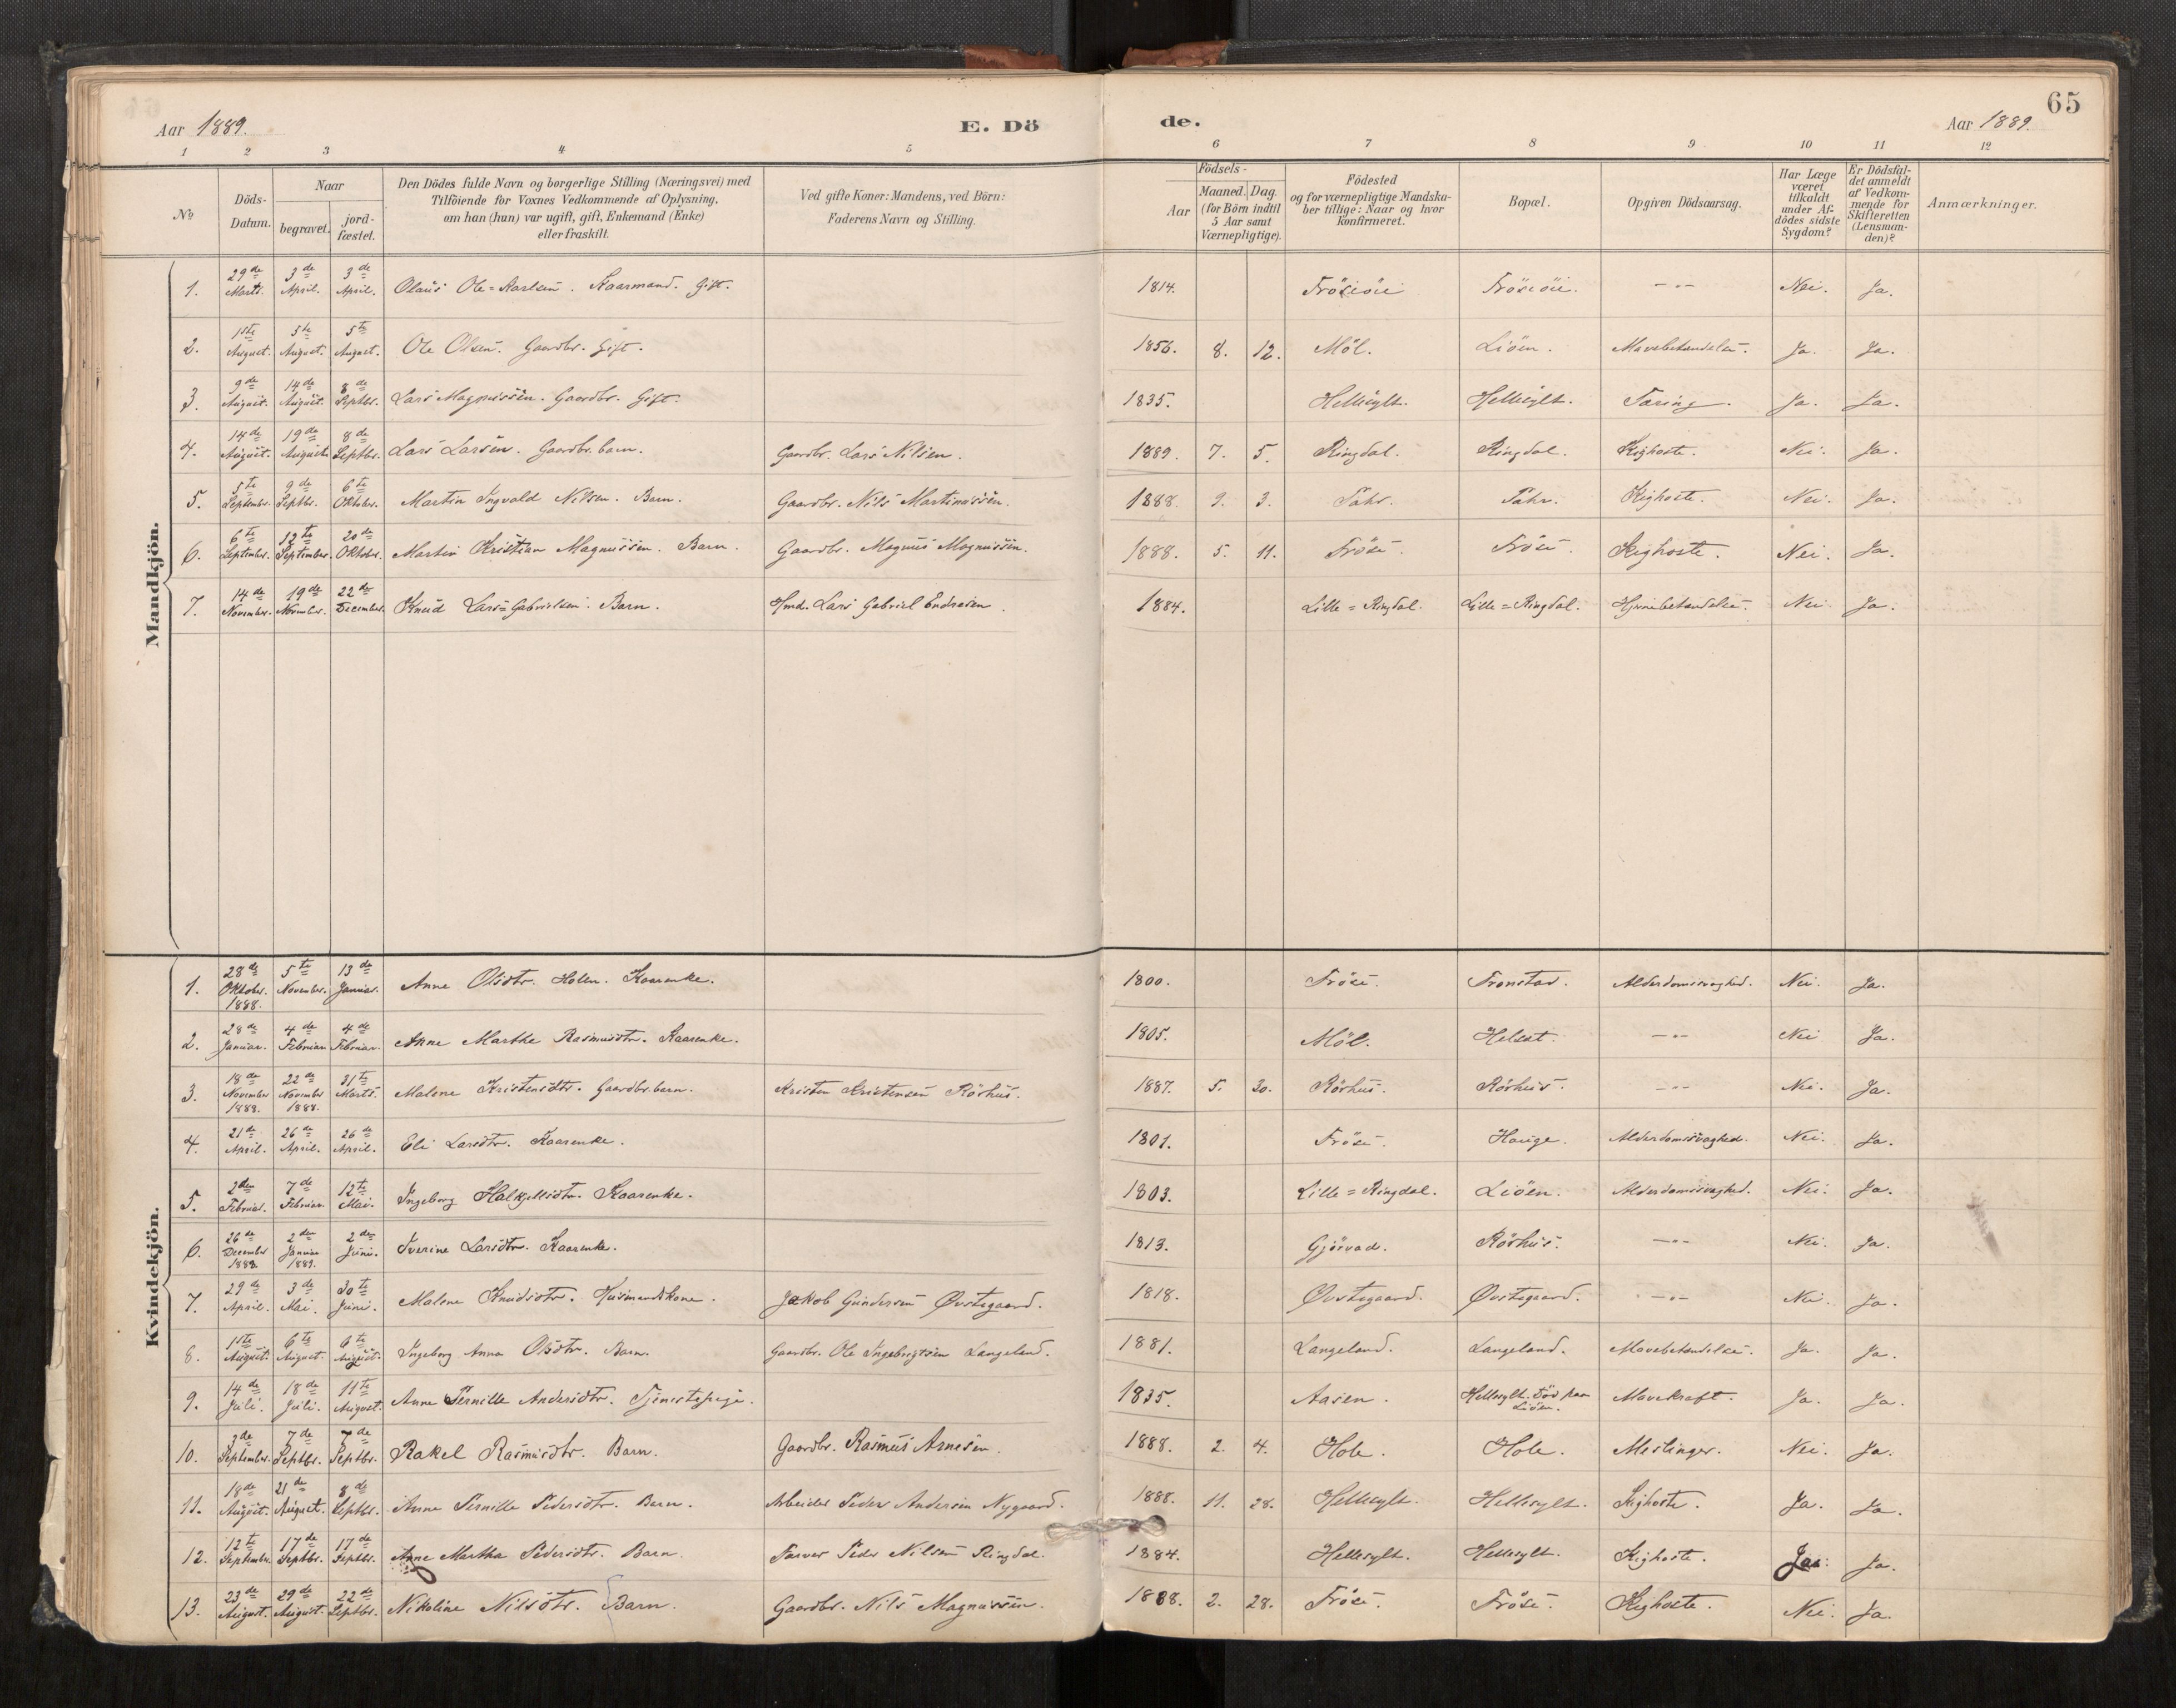 65
Aar 1889. E. Dö de. Aar 1889.
1 2 3 4 5 6 7 8 9 10 11 12
№ Döds-Datum. Naar begravet. jord-fæstet. Den Dödes fulde Navn og borgerlige Stilling (Næringsvei) med Tilföiende for Voxnes Vedkommende af Oplysning, om han (hun) var ugift, gift, Enkemand (Enke) eller fraskilt. Ved gifte Koner: Mandens, ved Börn: Faderens Navn og Stilling. Födsels- Aar Maaned. Dag. (for Börn indtil 5 Aar samt Værnepligtige). Födested og for værnepligtige Mandska-ber tillige: Naar og hvor konfirmeret. Bopæl. Opgiven Dödsaarsag. Har Læge været tilkaldt under Af-dödes sidste Sygdom? Er Dödsfal-det anmeldt af Vedkom-mende for Skifteretten (Lensman-den)? Anmærkninger.
Mandkjön.
1. 29de Marts. 3de April. 3de April. Olaus Ole=Karlsen. Kaarmand. Gift. 1814. Fröisöie Fröisöie. -"- Nei. Ja.
2. 1ste August. 5te August. 5te August. Ole Olsen. Gaardbr. Gift. 1856. 8. 12. Möl. Liöen. Mavebetændelse. Ja. Ja.
3. 9de August. 14de August. 8de Septbr. Lars Magnussen. Gaardbr. Gift. 1835. Hellesylt. Hellesylt. Tæring. Ja. Ja.
4. 14de August. 19de August. 8de Septbr. Lars Larsen. Gaardbr. barn. Gaardbr. Lars Nilsen. 1889. 7. 5. Ringdal. Ringdal. Kighoste. Nei. Ja.
5. 5te September. 9de Septbr. 6te Oktober. Martin Ingvald Nilsen. Barn. Gaardbr. Nils Martinussen. 1888. 9. 3. Tahr. Tahr. Kighoste. Nei. Ja.
6. 6te September. 12te September. 20de Oktober. Martin Kristian Magnussen. Barn. Gaardbr. Magnus Magnussen. 1888. 5. 11. Fröse. Fröse. Kighoste. Nei. Ja.
7. 14de November. 19de November. 22de December. Knud Lars=Gabrielsen. Barn. Hmd. Lars Gabriel Endresen. 1884. Lille=Ringdal. Lille=Ringdal. Hjernebetændelse. Nei. Ja.
Kvindekjön.
1. 28de Oktober. 1888. 5te November. 13de Januar. Anne Olsdtr. Holen. Kaarenke. 1800. Fröse. Tronstad. Alderdomssvaghed. Nei. Ja.
2. 28de Januar. 4de Februar. 4de Februar. Anne Marthe Rasmusdtr. Kaarenke. 1805. Möl. Helset. -"- Nei Ja.
3. 18de November 1888. 22de November 1888. 31te Marts. Malene Kristensdtr. Gaardbr.barn. Kristen Kristensen Rörhus. 1887. 5. 30. Rörhus. Rörhus. -"- Nei. Ja.
4. 21de April. 26de April. 26de April. Eli Larsdtr. Kaarenke. 1801. Fröse. Hauge. Alderdomssvaghed. Nei. Ja.
5. 2den Februar. 7de Februar. 12te Mai. Ingeborg Halkjelsdtr. Kaarenke. 1803. Lille=Ringdal. Liöen. Alderdomssvaghed. Nei. Ja.
6. 26de December 1888. 2den Januar 1889. 2den Juni. Iverine Larsdtr. Kaarenke. 1813. Gjörvad. Rörhus. -"- Nei. Ja.
7. 29de April. 3de Mai. 30te Juni. Malene Knudsdtr. Husmandskone. Jakob Gundersen Øvstegaard. 1818. Øvstegaard. Øvstegaard. -"- Nei. Ja.
8. 1ste August. 6te August. 6te August. Ingeborg Anna Olsdtr. Barn. Gaardbr. Ole Ingebrigtsen Langeland. 1881. Langeland. Langeland. Mavebetændelse. Ja. Ja.
9. 14de Juli. 18de Juli. 11te August. Anne Pernille Andersdtr. Tjenestepige. 1835. Aasen. Hellesylt. Död paa Liöen. Mavekræft. Ja. Ja.
10. 3de September. 7de Septbr. 7de Septbr. Rakel Rasmusdtr. Barn. Gaardbr. Rasmus Arnesen. 1888. 2. 4. Hole. Hole. Meslinger. Nei. Ja.
11. 18de August. 21de August. 8de Septbr. Anne Pernille Pedersdtr. Barn. Arbeider Peder Andersen Nygaard. 1888. 11. 28. Hellesylt. Hellesylt. Kighoste. Ja. Ja.
12. 12te September. 17de Septbr. 17de Septbr. Anne Martha Pedersdtr. Barn. Farver Peder Nilsen Ringdal. 1884. Hellesylt. Hellesylt. Kighoste. Ja. Ja.
13. 23de August. 29de August. 22de Septbr. Nikoline Nilsdtr. Barn. Gaardbr. Nils Magnussen. 1888. 2. 28. Fröse. Fröse. Kighoste. Nei. Ja.